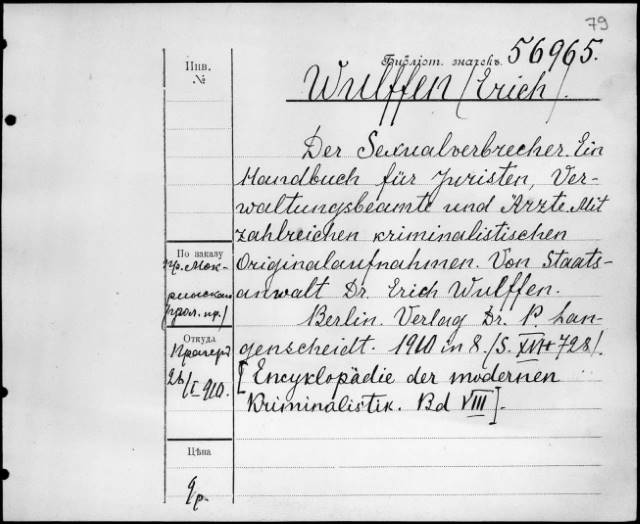 79
Библіот. значекъ. 56965.
Wulffen (Erich).
Инв.
№
Der Sexualverbrecher. Ein
Handbuch für Juristen, Ver-
waltungsbeamte und Ärzte. Mit
zahlreichen kriminalistischen
Originalaufnahmen. Von Staats-
anwalt Dr. Erich Wulffen.
Berlin. Verlag Dr. P. Lan-
genscheidt. 1910 in 8. (S. + 728).
[Encyklopädie der modernen
Kriminalistik. Bd VIII].
По заказу
пр. Мок-
ринскаго
Откуда
Прагеръ
910.
Цѣна
р.